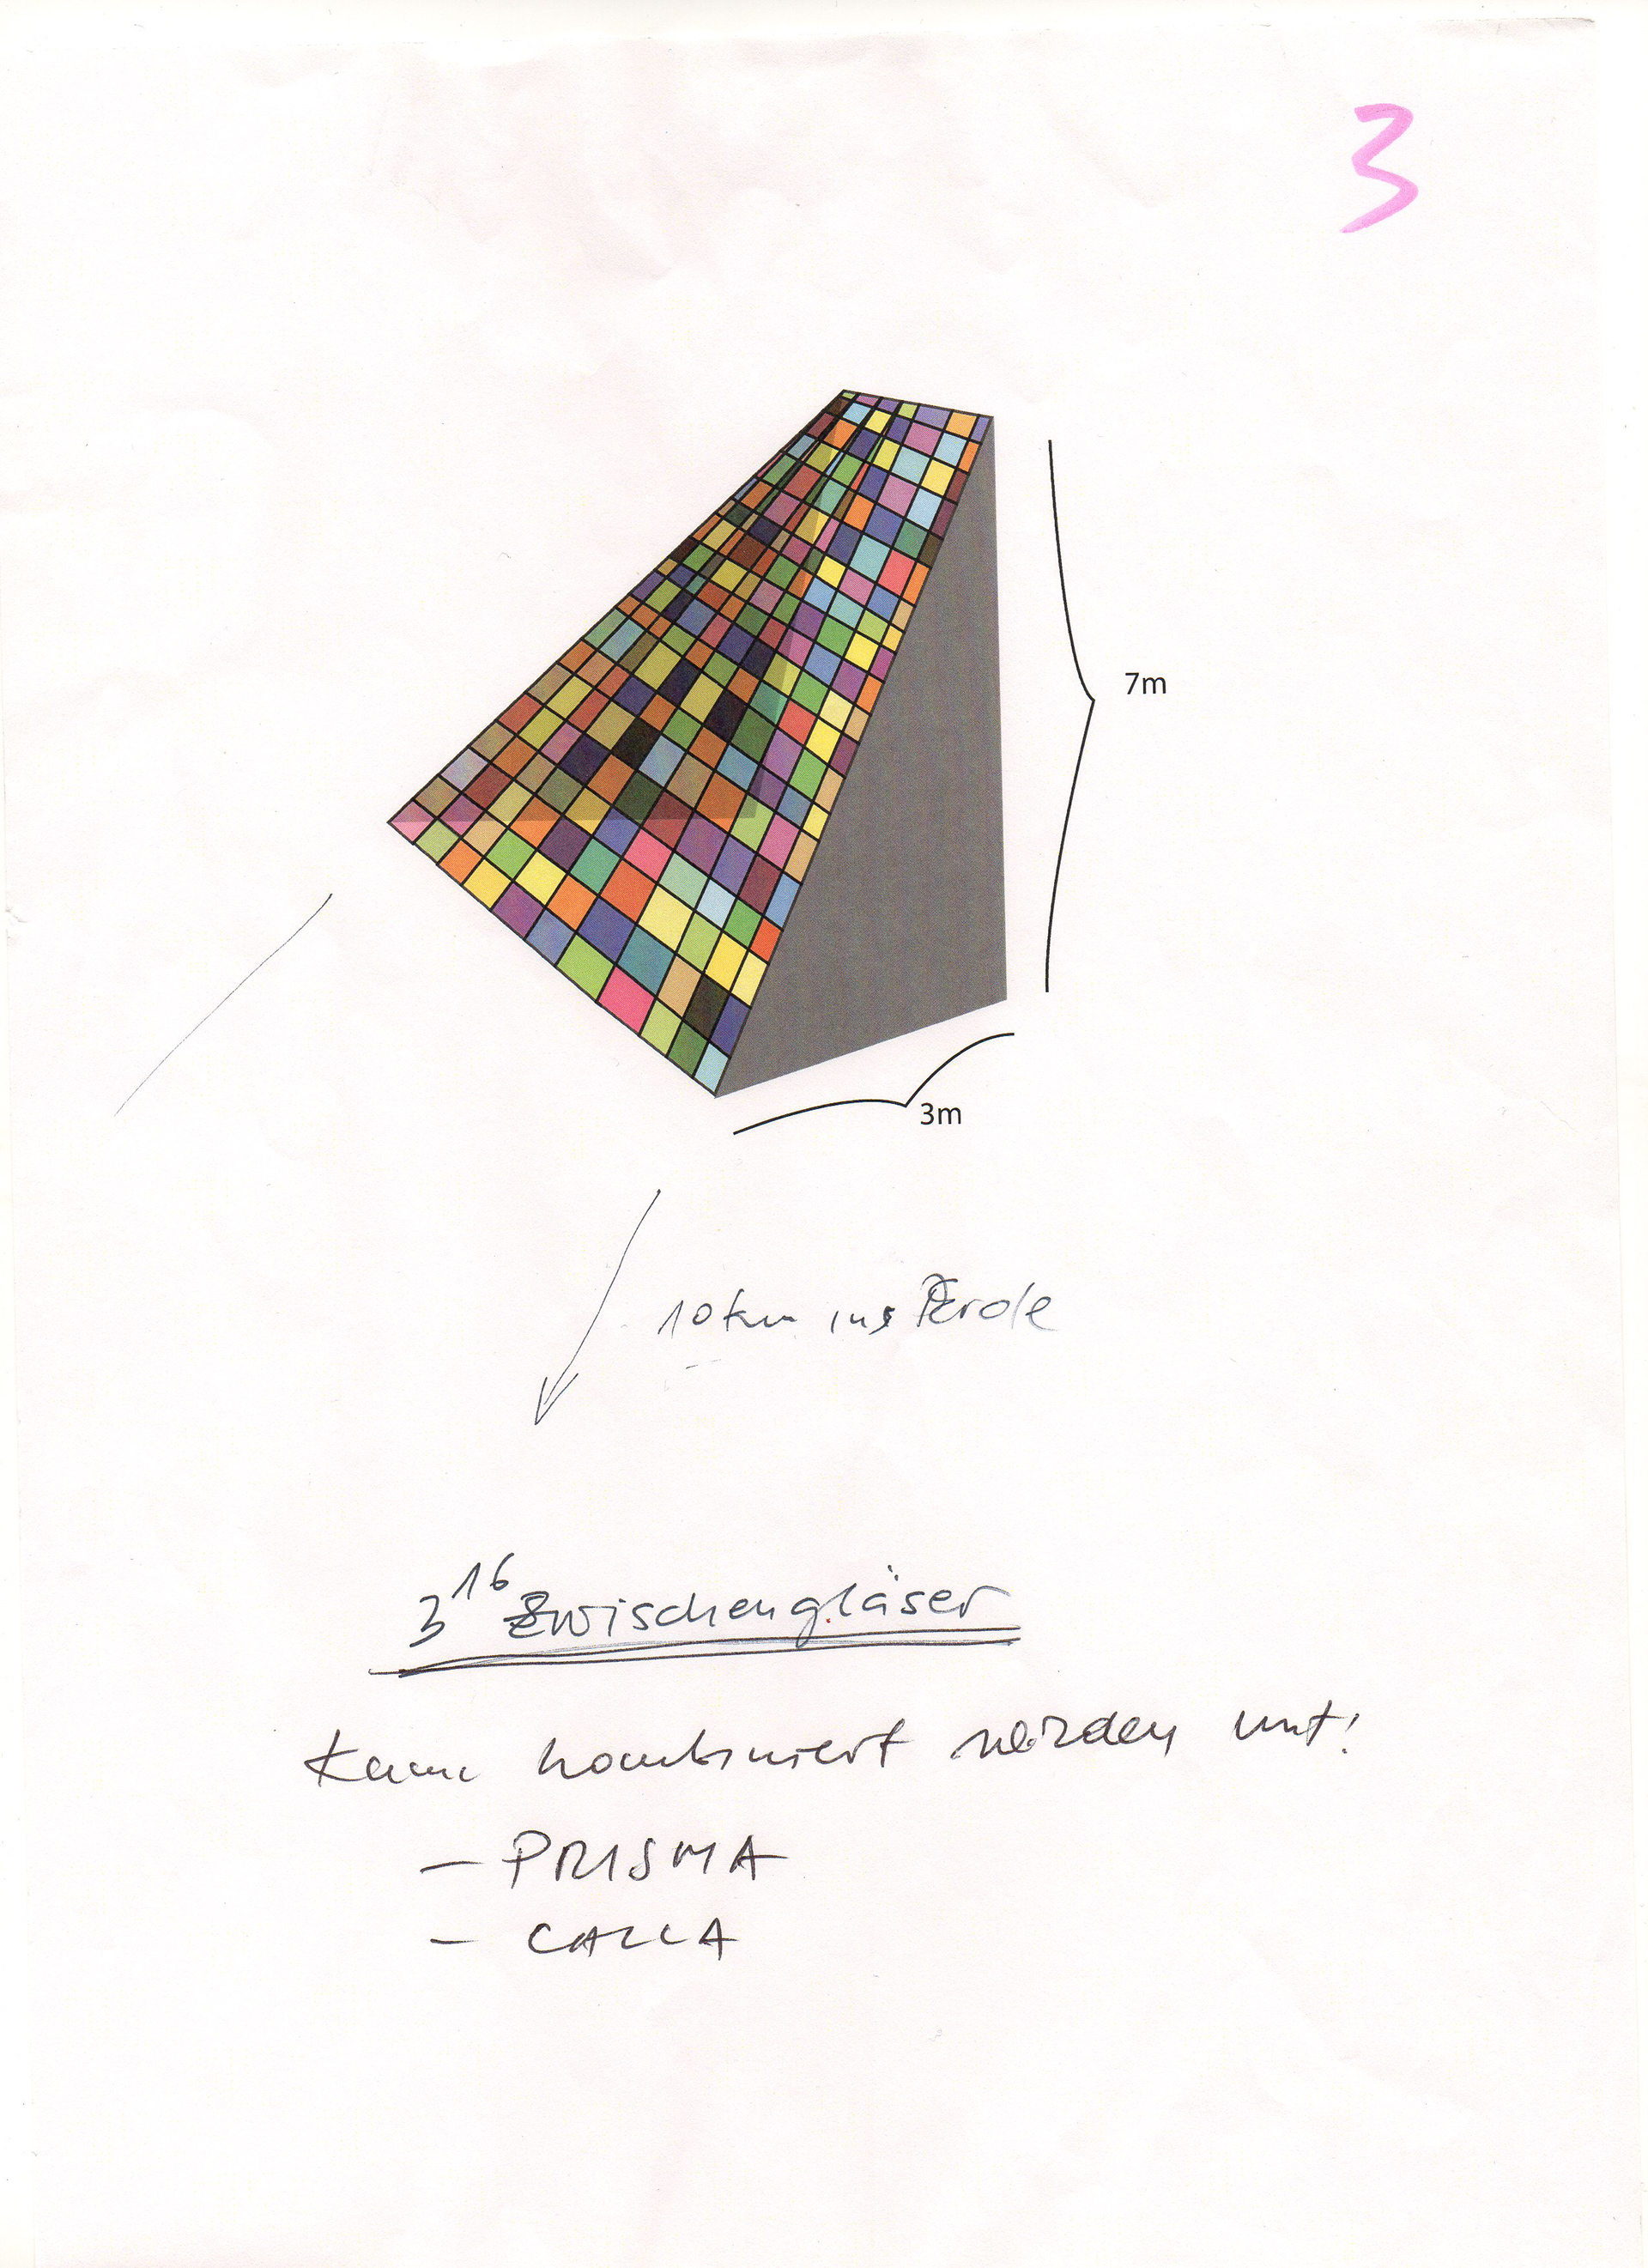 3
7m
3m
10 km ins Erde
3^16 Zwischengläser
Kann kombiniert werden mit:
– PRISMA
– CALLA